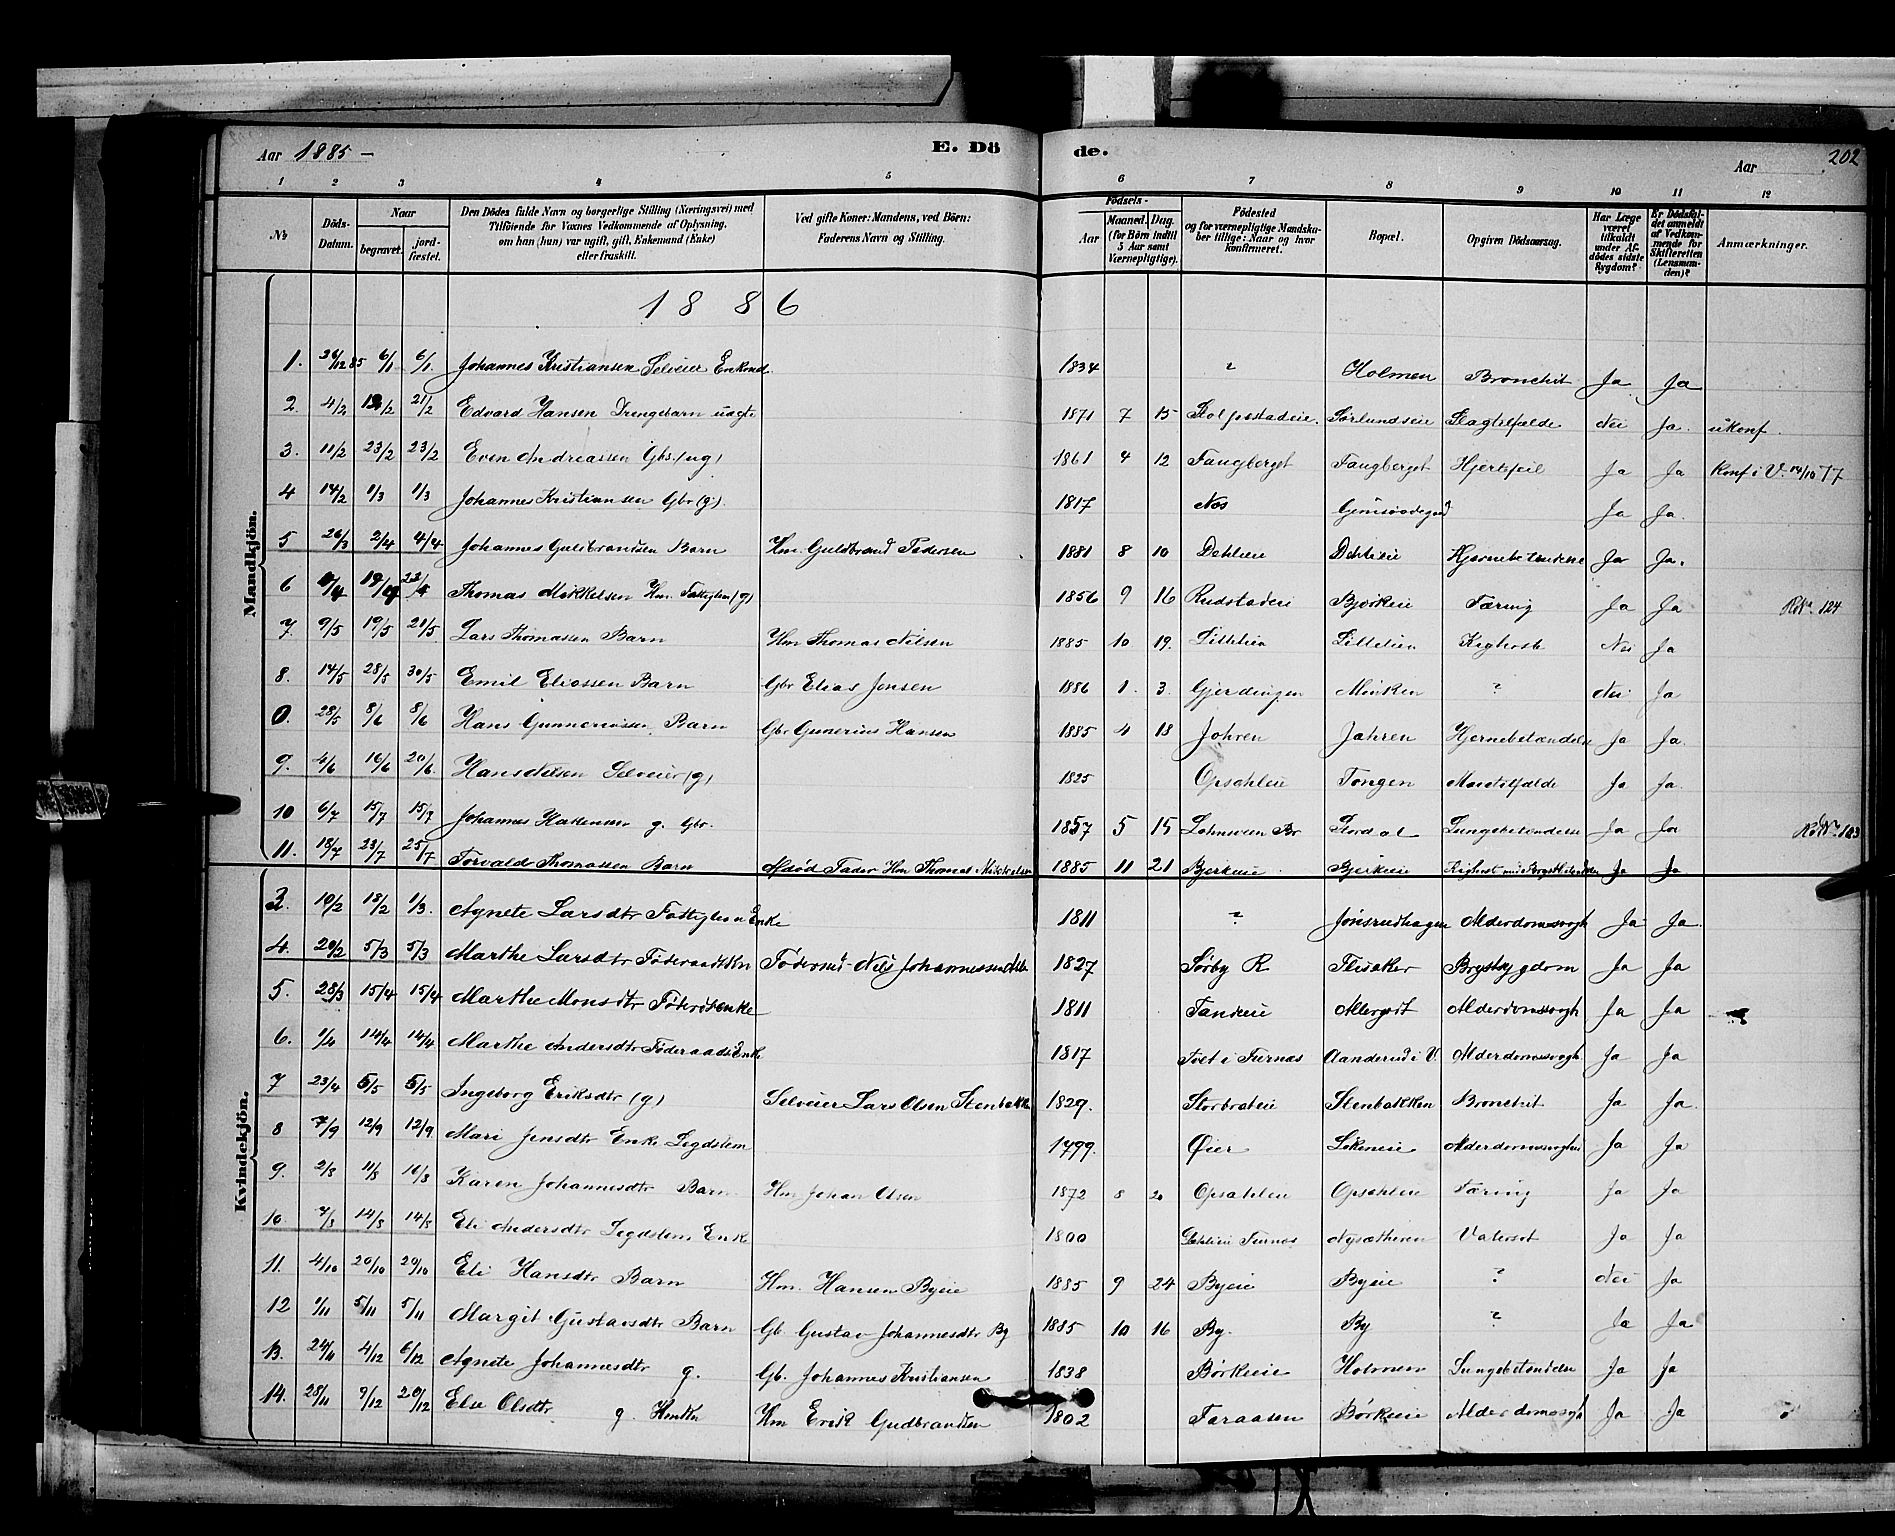 Aar 1885 — E. Döde. Aar 202
1 2 3 4 5 6 7 8 9 10 11 12
No. Döds-Datum. Naar begravet. jord-fæstet. Den Dödes fulde Navn og borgerlige Stilling (Næringsvei) med Tilföiende for Voxnes Vedkommende af Oplysning, om han (hun) var ugift, gift, Enkemand (Enke) eller fraskilt. Ved gifte Koner: Mandens, ved Börn: Faderens Navn og Stilling. Födsels- Aar Maaned. Dag. (for Börn indtil 5 Aar samt Værnepligtige). Födested og for værnepligtige Mandskaber tillige: Naar og hvor konfirmeret. Bopæl. Opgiven Dödsaarsag. Har Læge været tilkaldt under Afdödes sidste Sygdom? Er Dödsfaldet anmeldt af Vedkommende for Skifteretten (Lensmanden)? Anmærkninger.
1886
Mandkjön.
1. 26/12 85 6/1 6/1. Johannes Kristiansen Selveier Enkmd. 1834 " Holmen Bronchit Ja Ja
2. 4/2 12/2 21/2 Edvard Hansen Drengebarn 1871 7 15 Sørlundseie Slagtilfælde Nei Ja. ukonf.
3. 11/2 23/2 23/2 Even Andreassen Gbs. (ug) 1861 4 12 Fangberget Fangberget Hjertefeil Ja Ja Konf i V. 14/10 77
4 14/2 1/3 1/3 Johannes Kristiansen Gbr (g). 1817 Nes Ja Ja.
5 26/3 2/4 4/4 Johannes Guldbrandsen Barn Hm. Guldbrand Pedersen 1881 8 10 Dehlieie Dehlieie Hjernebetændelse Ja Ja.
6 19/4 Thomas Mikkelsen Hm. Fattiglem (g) 1856 9 16 Rudstadeie Bjørkeie Tæring Ja Ja 124
7. 9/5 19/5 21/5 Lars Thomassen Barn Hm Thomas Nilsen 1885 10 19. Lillelien Lillelien Kighoste Nei Ja
8. 14/5 28/5 30/5 Emil Eliassen Barn Gbr Elias Jensen 1886 1. 3. Gjerdingen Minken ? Nei Ja
0. 28/5 8/6 8/6 Hans Gunneriussen Barn Gbr Gunerius Hansen 1885 4 18 Jahren Jahren Hjernebetændelse Ja Ja.
9. 4/6 16/6 20/6. Hans Nilsen Selveier (g) 1825 Opsahleie Tangen Ja Ja.
10 6/7 15/7 15/7 Johannes g. Gbr. 1857 5 15 Lungebetændelse Ja Ja
11. 18/7 23/7 25/7 Torvald Thomassen Barn Afdød Fader Hm Thomas Mikkelsen 1885 11 21 Bjerkeie Bjerkeie Ja Ja
Kvindekjön.
3. 10/2 18/2 1/3. Agnete Larsdtr Fattiglem Enke 1811 ? Jønsrudhagen Alderdomssvagh Ja Ja.
4. 20/2 5/3 5/3 Marthe Larsdtr Johannessen 1827 Sørby R Brystsygdom Ja Ja
5. 28/3 15/4 15/4 Marthe Monsdtr 1811 Alderdomssvagh Ja Ja
6. 1/4 14/4 14/4 Marthe Andersdtr Føderaads Enke 1817 Tvet i Furnes Aanderud i V. Alderdomssvagh Ja Ja
7 23/4 5/5 5/5 Ingeborg Eriksdtr (g) Selveier Lars Olsen Stenbakken 1829. Storbrateie Stenbakken Bronchit Ja Ja.
8 7/9 12/9 12/9 Mari Jensdtr Enke Legdslem 1799. Øier Løkeneie Alderdomssvaghed Ja Ja
9. 2/8 11/8 16/8 Karen Johannesdtr Barn Hm Johan Olsen 1872 8 20 Opsahleie Opsahleie Tæring Ja Ja
10. 7/8 14/8 14/8 Eli Andersdtr Legdslem Enke 1800 Furnes Nysætheren Vatersot Ja Ja
11. 4/10 20/10 20/10 Eli Hansdtr Barn Hm. Hansen Byeie 1885 9 24 Byeie Byeie ? Nei Ja
12 1/11 5/11 5/11 Margit Gustavsdtr Barn Gb. Gustav Johannesdtr By 1885 10 16 By. By ? Ja Ja
13. 24/11 4/12 6/12 Agnete Johannesdtr g. Gb. Johannes Kristiansen 1838 Børkeeie Holmen Lungebetændelse Ja Ja
14. 28/11 9/12 20/12 Else Olsdtr g. Hmkn Hm Erik Gudbrandsen 1802 Faraasen Børkeeie Alderdomssvgh Ja Ja